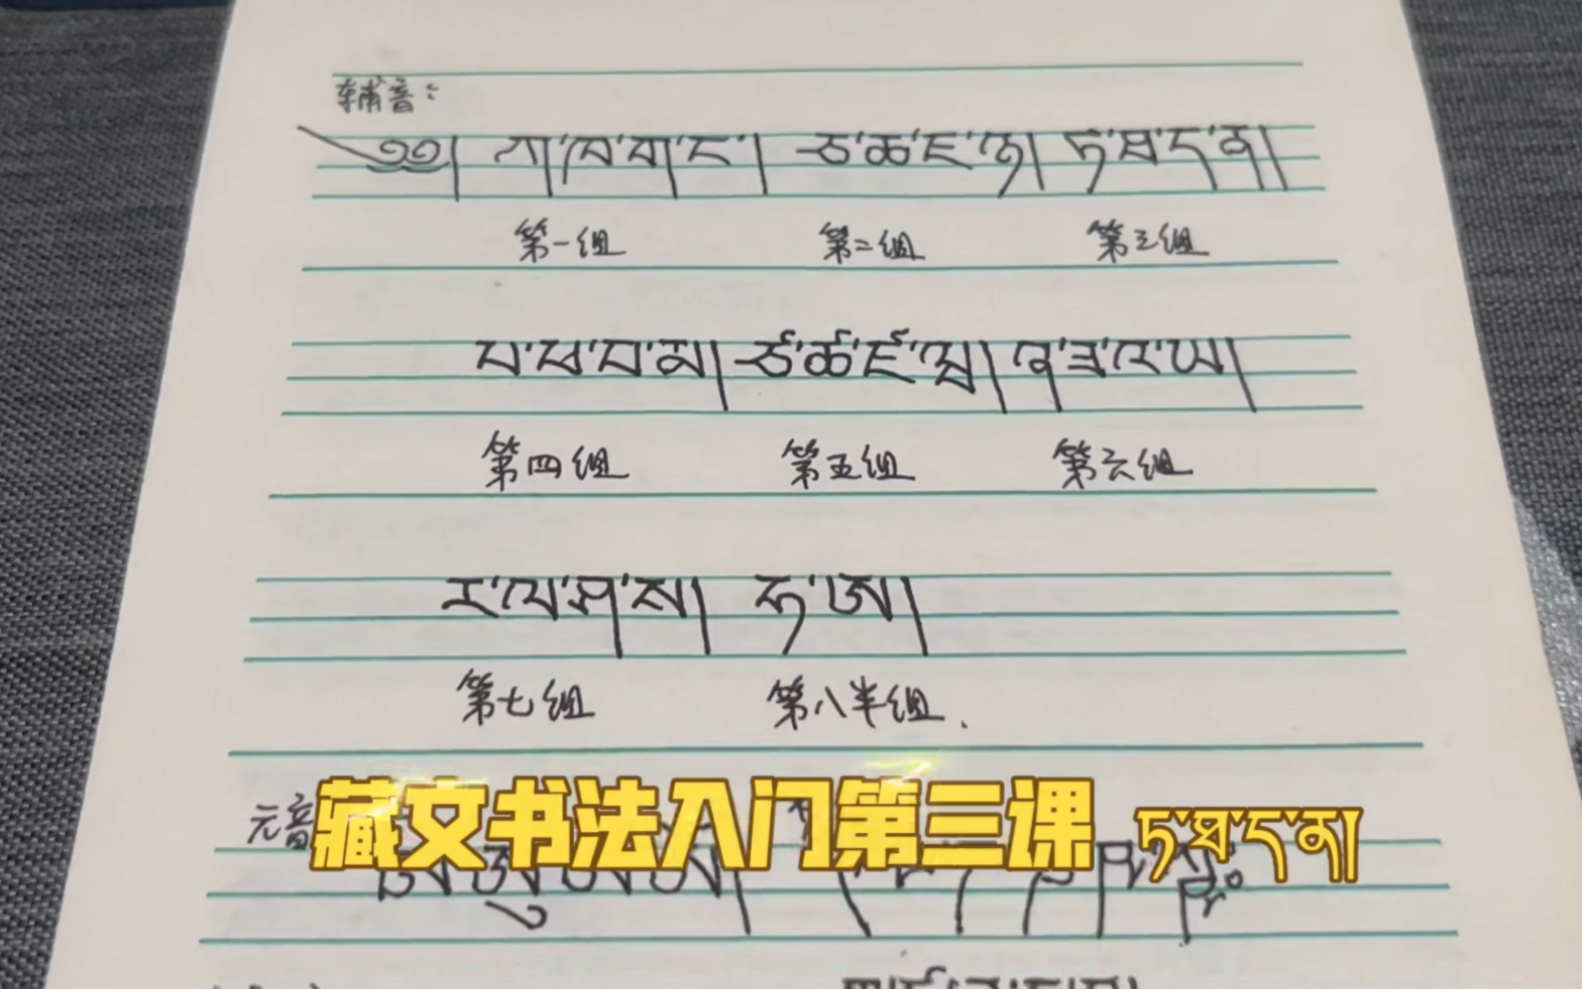 辅音:
༄༅། ཀ་ཁ་ག་ང་། ཅ་ཆ་ཇ་ཉ། ཏ་ཐ་ད་ན།
第一组 第二组 第三组
པ་ཕ་བ་མ། ཙ་ཚ་ཛ་ཝ། ཞ་ཟ་འ་ཡ།
第四组 第五组 第六组
ར་ལ་ཤ་ས། ཧ་ཨ།
第七组 第八半组.
元音
藏文书法入门第三课 ཏ་ཐ་ད་ན།